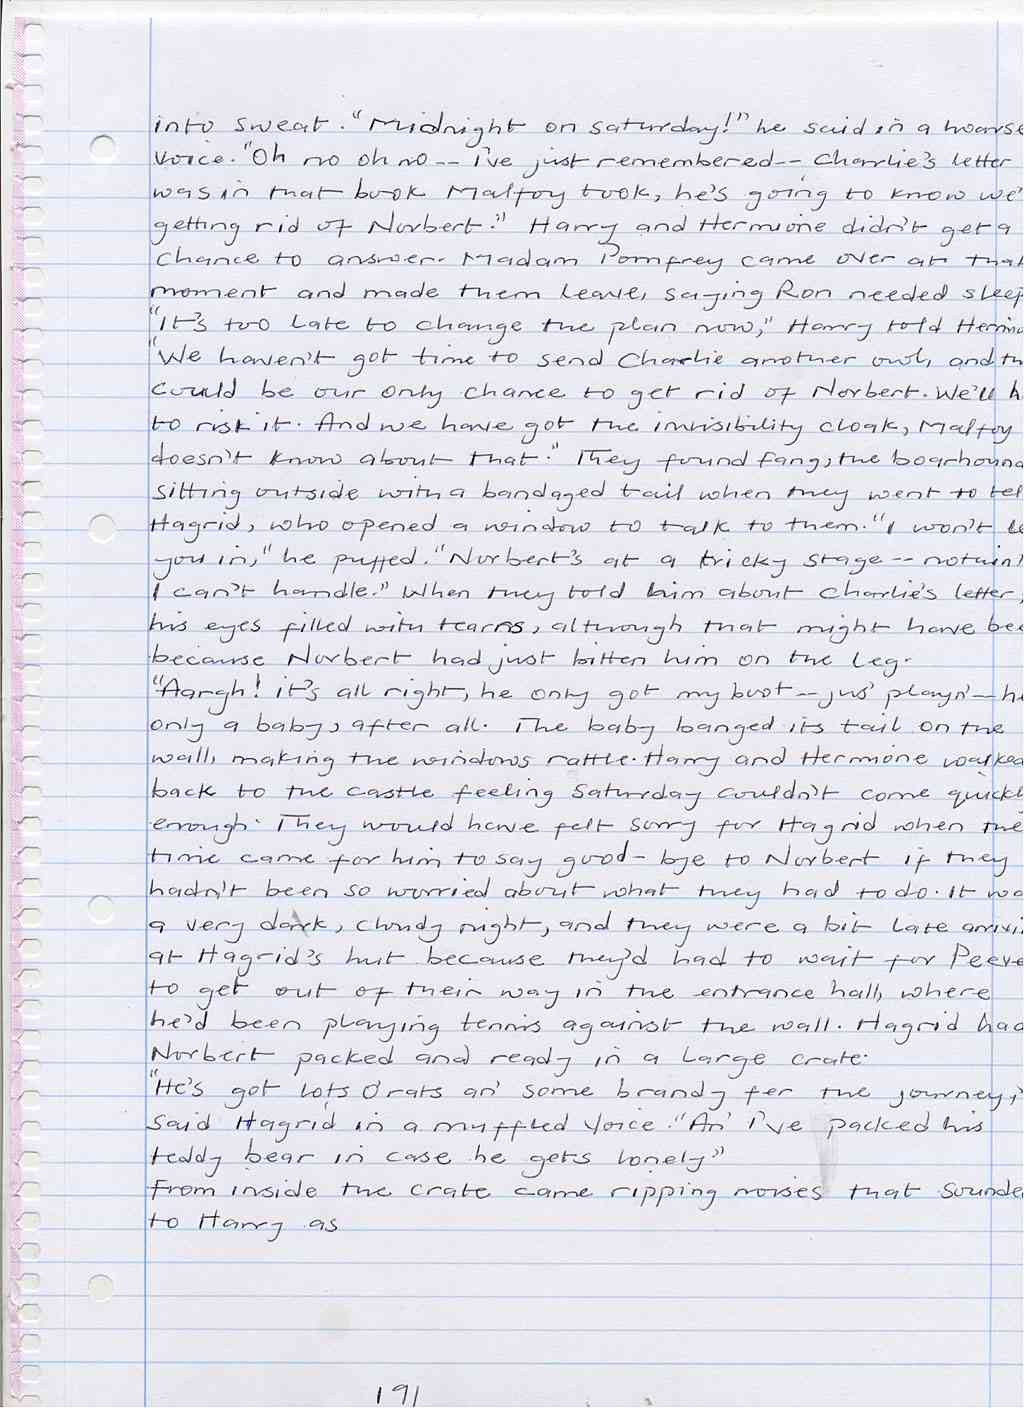 into sweat. "Midnight on saturday!" he said in a hoarse
voice. "Oh no oh no -- I've just remembered -- Charlie's letter
was in that book Malfoy took, he's going to know we'
getting rid of Norbert." Harry and Hermione didn't get a
chance to answer. Madam Pomfrey came over at that
moment and made them leave, saying Ron needed sleep
"It's too late to change the plan now," Harry told Hermio
"We haven't got time to send Charlie another owl, and th
could be our only chance to get rid of Norbert. We'll h
to risk it. And we have got the invisibility cloak, Malfoy
doesn't know about that." They found fang, the boarhound
sitting outside with a bandaged tail when they went to tel
Hagrid, who opened a window to talk to them. "I won't le
you in," he puffed. "Norbert's at a tricky stage -- nothin'
I can't handle." When they told him about Charlie's letter,
his eyes filled with tears, although that might have bee
because Norbert had just bitten him on the leg.
"Aargh! it's all right, he only got my boot -- jus' playn' -- he
only a baby, after all. The baby banged its tail on the
wall, making the windows rattle. Harry and Hermione walked
back to the castle feeling Saturday couldn't come quickl
enough. They would have felt sorry for Hagrid when the
time came for him to say good-bye to Norbert if they
hadn't been so worried about what they had to do. It wa
a very dark, cloudy night, and they were a bit late arrivi
at Hagrid's hut because they'd had to wait for Peeve
to get out of their way in the entrance hall, where
he'd been playing tennis against the wall. Hagrid had
Norbert packed and ready in a large crate.
"He's got lots O rats an' some brandy fer the journey,"
said Hagrid in a muffled voice. "An' I've packed his
teddy bear in case he gets lonely"
From inside the crate came ripping noises that sounde
to Harry as
191